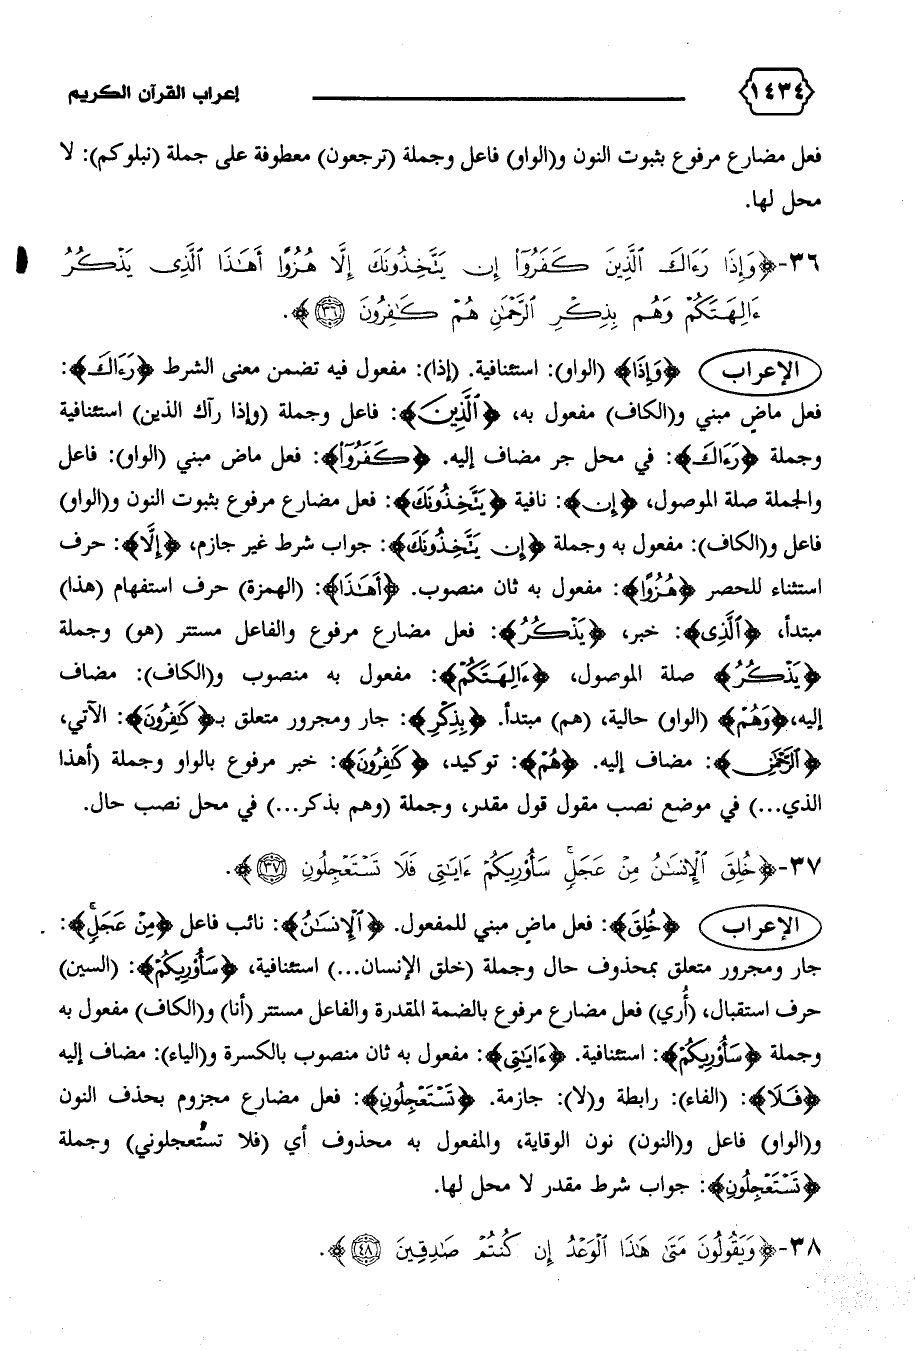 ١٤٣٤ إعراب القرآن الكريم
فعل مضارع مرفوع بثبوت النون و(الواو) فاعل وجملة (ترجعون) معطوفة على جملة (نبلوكم): لا
محل لها.
٣٦-﴿وَإِذَا رَءَاكَ ٱلَّذِينَ كَفَرُوٓا۟ إِن يَتَّخِذُونَكَ إِلَّا هُزُوًا أَهَـٰذَا ٱلَّذِى يَذْكُرُ
ءَالِهَتَكُمْ وَهُم بِذِكْرِ ٱلرَّحْمَـٰنِ هُمْ كَـٰفِرُونَ ٣٦﴾.
الإعراب ﴿وَإِذَا﴾ (الواو): استئنافية. (إذا): مفعول فيه تضمن معنى الشرط ﴿رَءَاكَ﴾:
فعل ماضٍ مبني و(الكاف) مفعول به، ﴿ٱلَّذِينَ﴾: فاعل وجملة (وإذا رآك الذين) استئنافية
وجملة ﴿رَءَاكَ﴾: في محل جر مضاف إليه. ﴿كَفَرُوٓا۟﴾: فعل ماض مبني (الواو): فاعل
والجملة صلة الموصول، ﴿إِن﴾: نافية ﴿يَتَّخِذُونَكَ﴾: فعل مضارع مرفوع بثبوت النون و(الواو)
فاعل و(الكاف): مفعول به وجملة ﴿إِن يَتَّخِذُونَكَ﴾: جواب شرط غير جازم، ﴿إِلَّا﴾: حرف
استثناء للحصر ﴿هُزُوًا﴾: مفعول به ثان منصوب. ﴿أَهَـٰذَا﴾: (الهمزة) حرف استفهام (هذا)
مبتدأ، ﴿ٱلَّذِى﴾: خبر، ﴿يَذْكُرُ﴾: فعل مضارع مرفوع والفاعل مستتر (هو) وجملة
﴿يَذْكُرُ﴾ صلة الموصول، ﴿ءَالِهَتَكُمْ﴾: مفعول به منصوب و(الكاف): مضاف
إليه،﴿وَهُم﴾ (الواو) حالية، (هم) مبتدأ. ﴿بِذِكْرِ﴾: جار ومجرور متعلق بـ﴿كَـٰفِرُونَ﴾: الآتي،
﴿ٱلرَّحْمَـٰنِ﴾: مضاف إليه. ﴿هُمْ﴾: توكيد، ﴿كَـٰفِرُونَ﴾: خبر مرفوع بالواو وجملة (أهذا
الذي...) في موضع نصب مقول قول مقدر، وجملة (وهم بذكر...) في محل نصب حال.
٣٧-﴿خُلِقَ ٱلْإِنسَـٰنُ مِنْ عَجَلٍ ۚ سَأُو۟رِيكُمْ ءَايَـٰتِى فَلَا تَسْتَعْجِلُونِ ٣٧﴾.
الإعراب ﴿خُلِقَ﴾: فعل ماضٍ مبني للمفعول. ﴿ٱلْإِنسَـٰنُ﴾: نائب فاعل ﴿مِنْ عَجَلٍ ۚ﴾:
جار ومجرور متعلق بمحذوف حال وجملة (خلق الإنسان...) استئنافية، ﴿سَأُو۟رِيكُمْ﴾: (السين)
حرف استقبال، (أُري) فعل مضارع مرفوع بالضمة المقدرة والفاعل مستتر (أنا) و(الكاف) مفعول به
وجملة ﴿سَأُو۟رِيكُمْ﴾: استئنافية. ﴿ءَايَـٰتِى﴾: مفعول به ثان منصوب بالكسرة و(الياء): مضاف إليه
﴿فَلَا﴾: (الفاء): رابطة و(لا): جازمة. ﴿تَسْتَعْجِلُونِ﴾: فعل مضارع مجزوم بحذف النون
و(الواو) فاعل و(النون) نون الوقاية، والمفعول به محذوف أي (فلا تستُعجلوني) وجملة
﴿تَسْتَعْجِلُونِ﴾: جواب شرط مقدر لا محل لها.
٣٨-﴿وَيَقُولُونَ مَتَىٰ هَـٰذَا ٱلْوَعْدُ إِن كُنتُمْ صَـٰدِقِينَ ٤٨﴾.